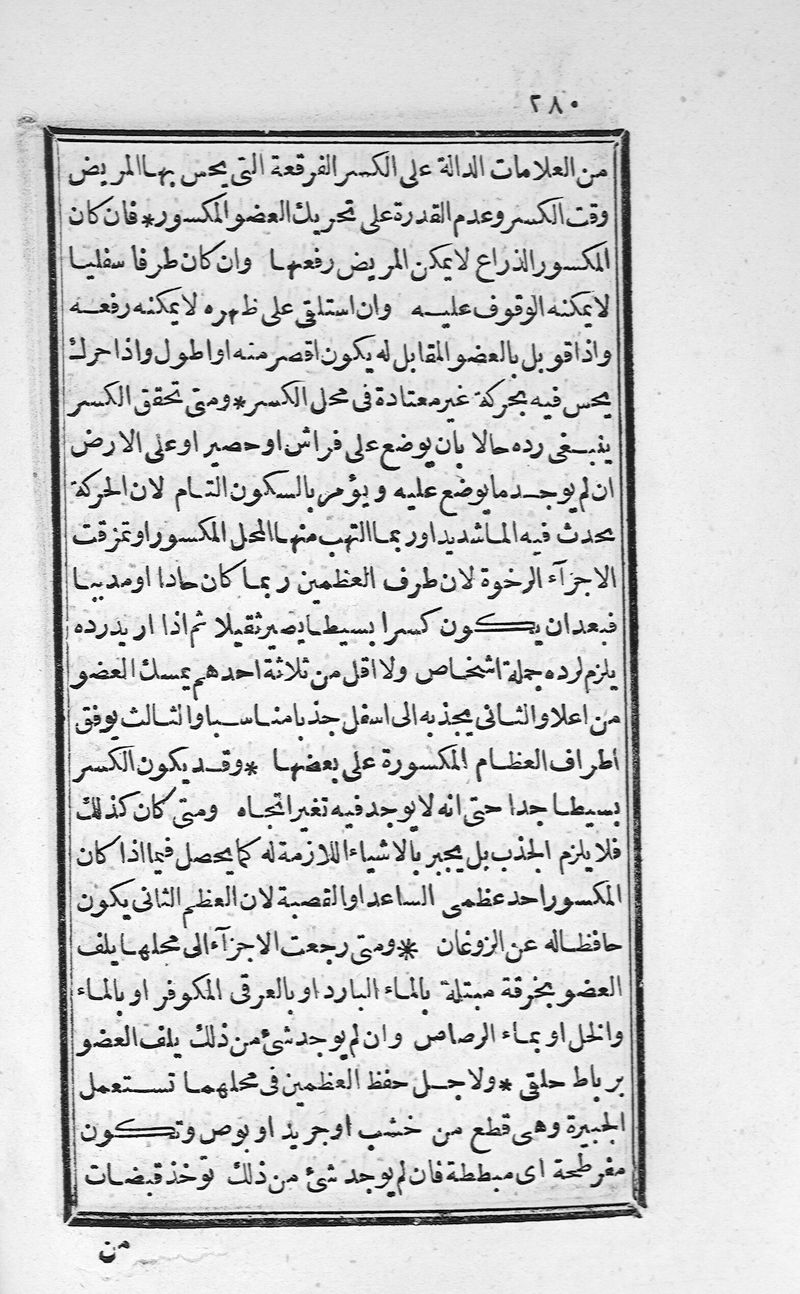 ٢٨٠
من العلامات الدالة على الكسر الفرقعة التى يحس بها المريض
وقت الكسر وعدم القدرة على تحريك العضو المكسور * فان كان
المكسور الذراع لا يمكن المريض رفعها وان كان طرفا سفليا
لا يمكنه الوقوف عليه وان استلقى على ظهره لا يمكنه رفعه
واذا قوبل بالعضو المقابل له يكون اقصر منه او اطول واذا حرك
يحس فيه بحركة غير معتادة فى محل الكسر * ومتى تحقق الكسر
ينبغى رده حالا بأن يوضع على فراش او حصير او على الارض
ان لم يوجد ما يوضع عليه ويؤمر بالسكون التام لان الحركة
يحدث فيه الما شديدا وربما التهب منها المحل المكسور او تمزقت
الاجزآء الرخوة لان طرف العظمين ربما كان حادا او مدببا
فبعد ان يكون كسرا بسيطا يصير ثقيلا ثم اذا اريد رده
يلزم لرده جملة اشخاص ولا اقل من ثلاثة احدهم يمسك العضو
من اعلا والثانى يجذبه الى اسفل جذبا مناسبا والثالث يوفق
اطراف العظام المكسورة على بعضها * وقد يكون الكسر
بسيطا جدا حتى انه لا يوجد فيه تغير اتجاه ومتى كان كذلك
فلا يلزم الجذب بل يجبر بالاشياء اللازمة له كما يحصل فيما اذا كان
المكسور احد عظمى الساعد او القصبة لان العظم الثانى يكون
حافظا له عن الزوغان * ومتى رجعت الاجزآء الى محلها يلف
العضو بخرقة مبتلة بالماء البارد او بالعرقى المكوفر او بالماء
والخل او بماء الرصاص وان لم يوجد شئ من ذلك يلف العضو
برباط حلقى * ولاجل حفظ العظمين فى محلهما تستعمل
الجبيرة وهى قطع من خشب او جريد او بوص وتكون
مفرطحة اى مبططة فان لم يوجد شئ من ذلك توخذ قبضات
من